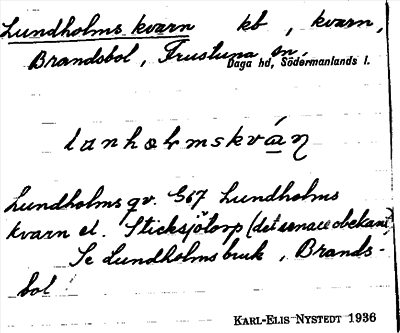 Lundholms kvarn kb, kvarn,
Brandsbol, Frustuna sn,
Daga hd, Södermanlands l.
lanholmskván
Lundholms qv. G67 Lundholms
kvarn el. Sticksjötorp (det senare obekant)
Se Lundholms bruk, Brands-
bol
KARL-ELIS NYSTEDT 1936